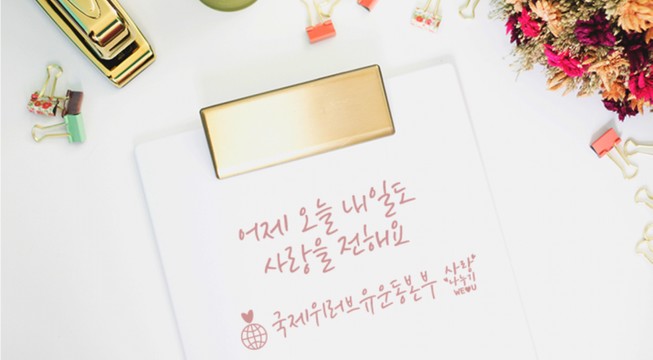 어제 오늘 내일도
사랑을 전해요
국제위러브유운동본부
"사랑
나누기"
WE♥U